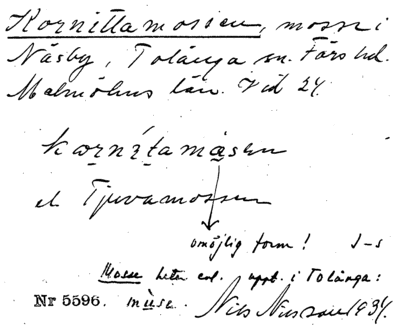 Kornittamossen, mosse i
Näsby, Tolånga sn. Färs hd.
Malmöhus län. Vid 24.
kornítamåsen
el. Tjuvamossen
omöjlig form! J-s
Mosse heter enl. uppt. i Tolånga:
Nr 5596. müse. Nils Nilsson 1934.